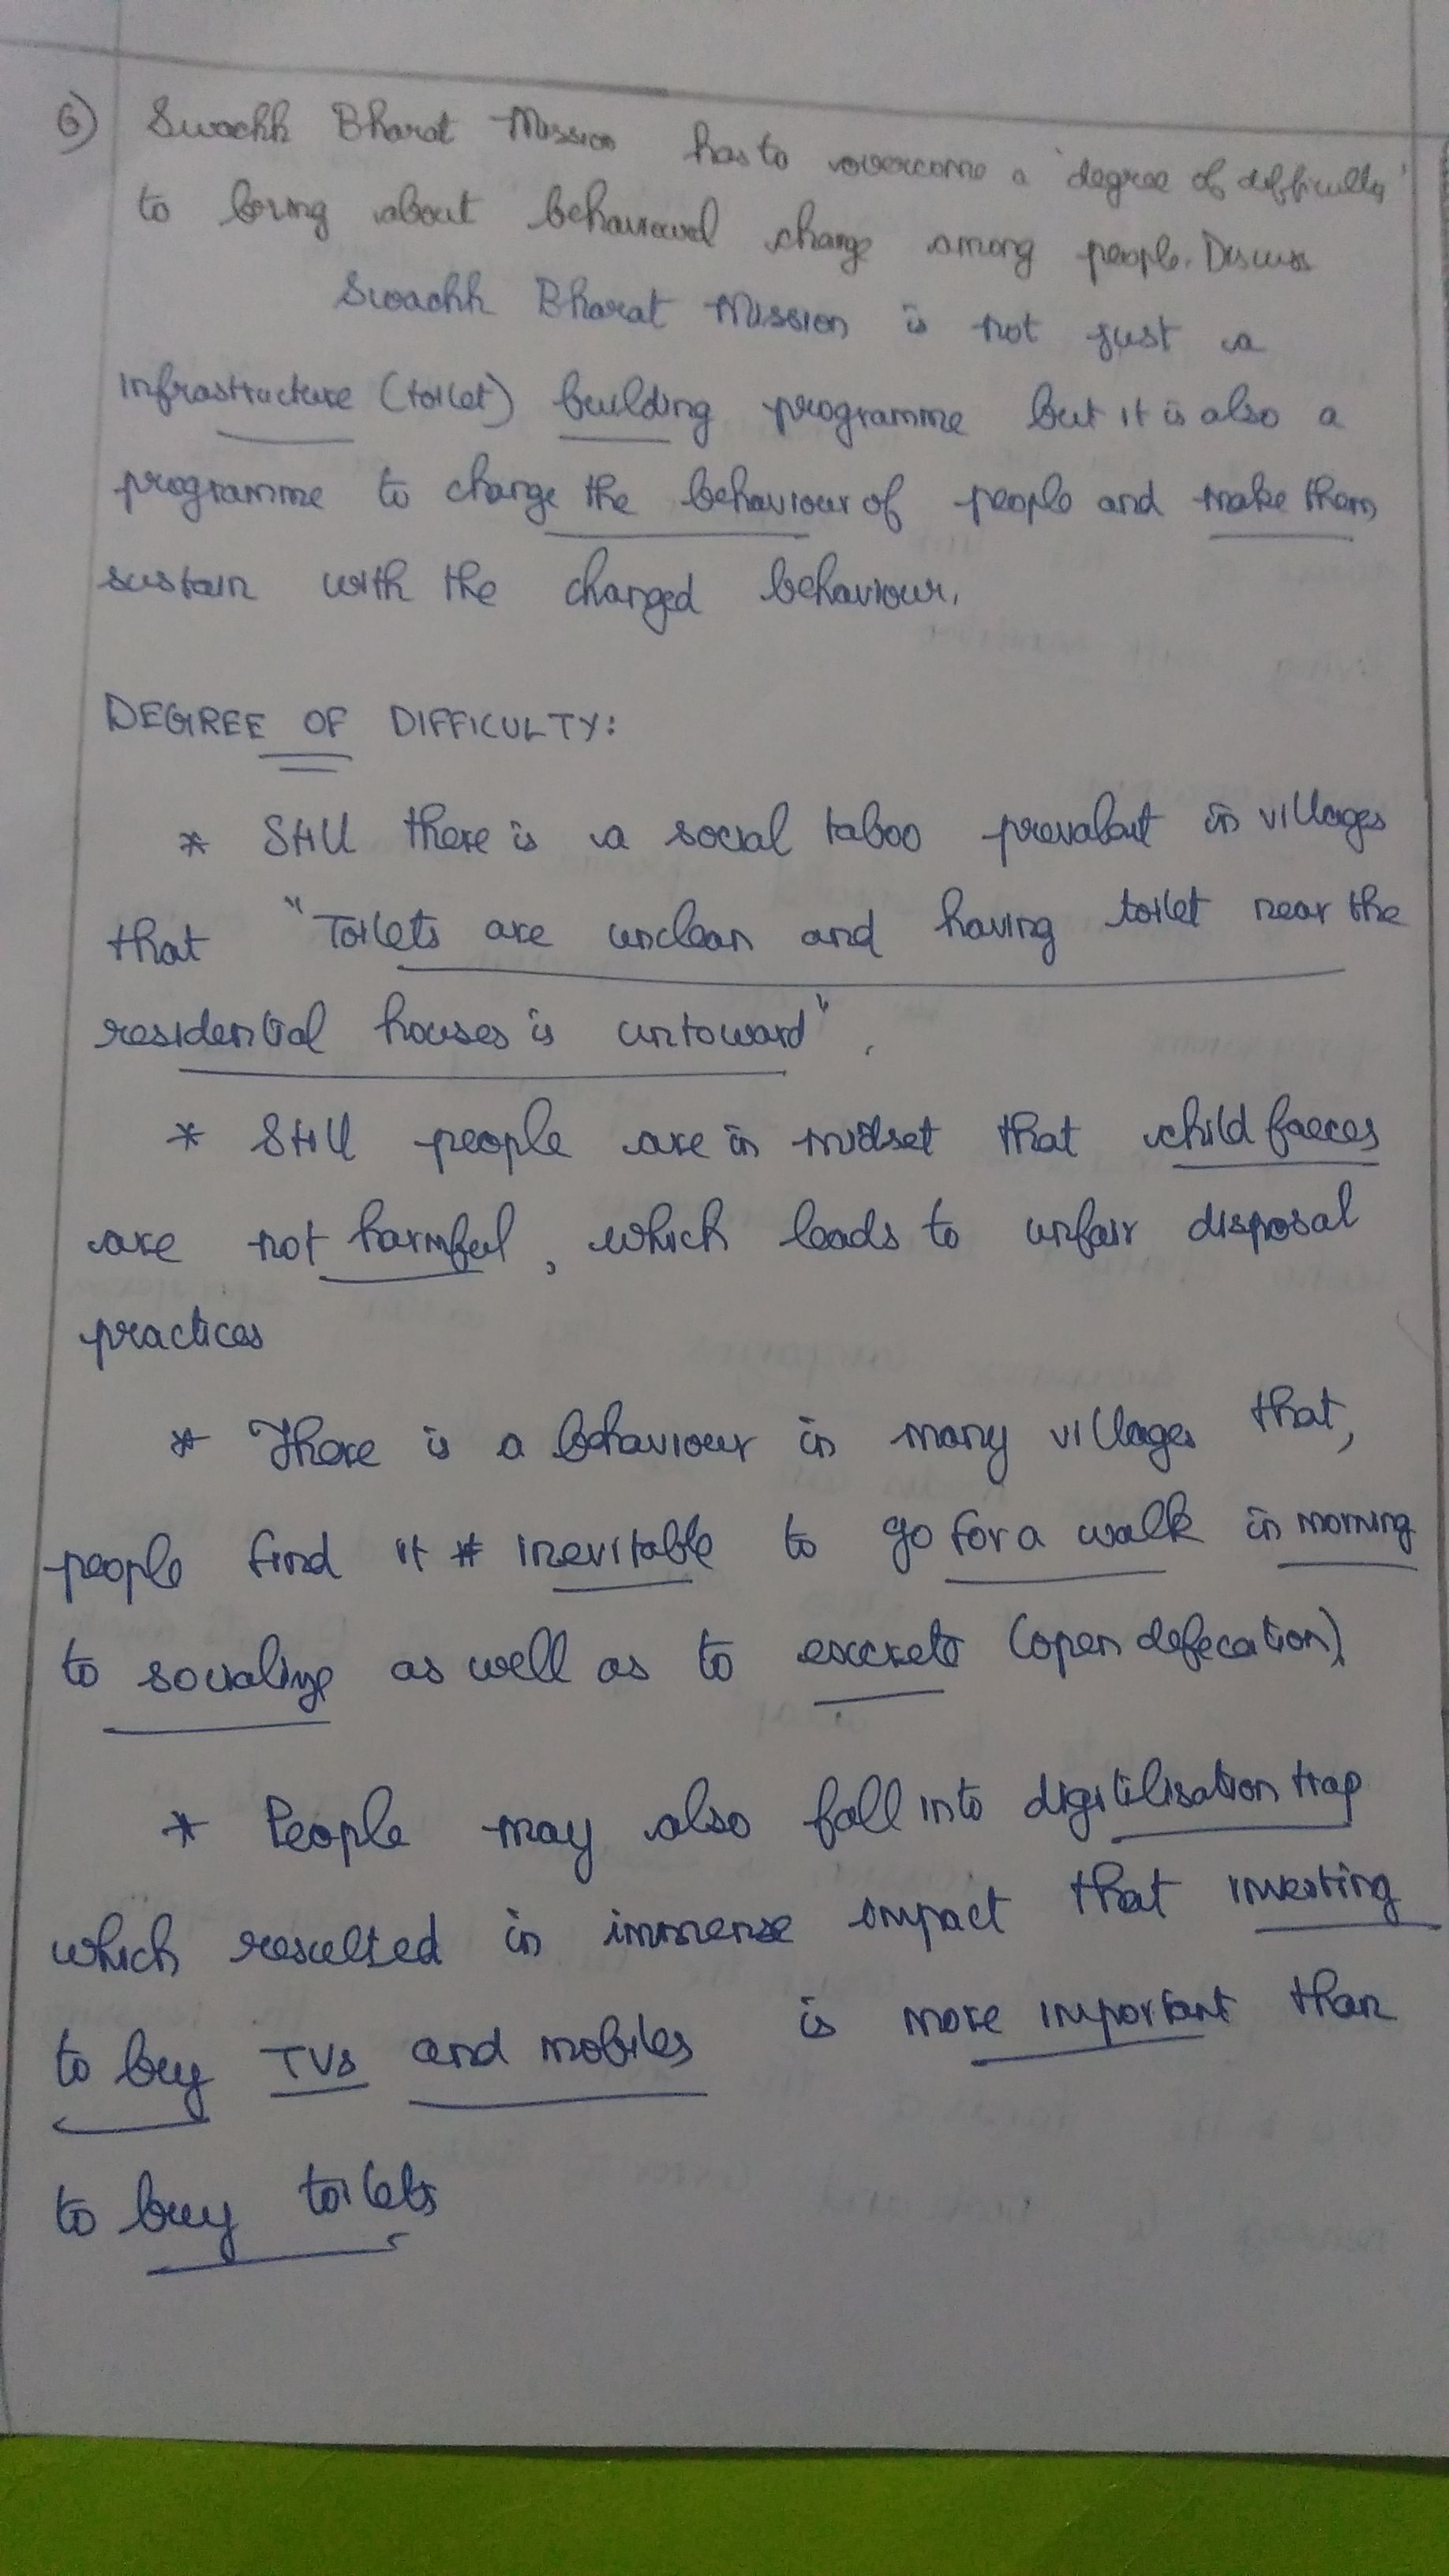 6) Swachh Bharat Mission has to overcome a 'degree of difficulty'
to bring about behavioural change among people. Discuss
Swachh Bharat Mission is not just a
infrastructure (toilet) building programme but it is also a
programme to change the behaviour of people and make them
sustain with the changed behaviour.
DEGREE OF DIFFICULTY:
* Still there is a social taboo prevalent in villages
that "Toilets are unclean and having toilet near the
residential houses is untoward".
* Still people are in midset that child faeces
are not harmful, which leads to unfair disposal
practices
* There is a behaviour in many villages that,
people find it inevitable to go for a walk in morning
to socialize as well as to excrete (open defecation)
* People may also fall into digitilisation trap
which resulted in immense impact that investing
to buy TVs and mobiles is more important than
to buy toilets